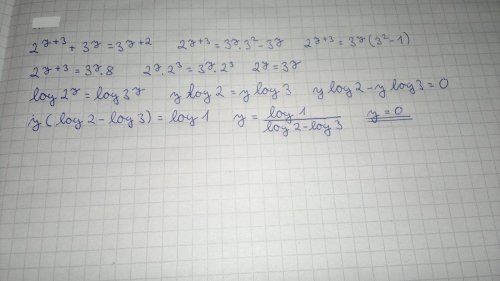 2^{y+3} + 3^y = 3^{y+2}   2^{y+3} = 3^y · 3^2 - 3^y   2^{y+3} = 3^y (3^2 - 1)
2^{y+3} = 3^y · 8   2^y · 2^3 = 3^y · 2^3   2^y = 3^y
log 2^y = log 3^y   y log 2 = y log 3   y log 2 - y log 3 = 0
y (log 2 - log 3) = log 1   y = \frac{log 1}{log 2 - log 3}   y = 0